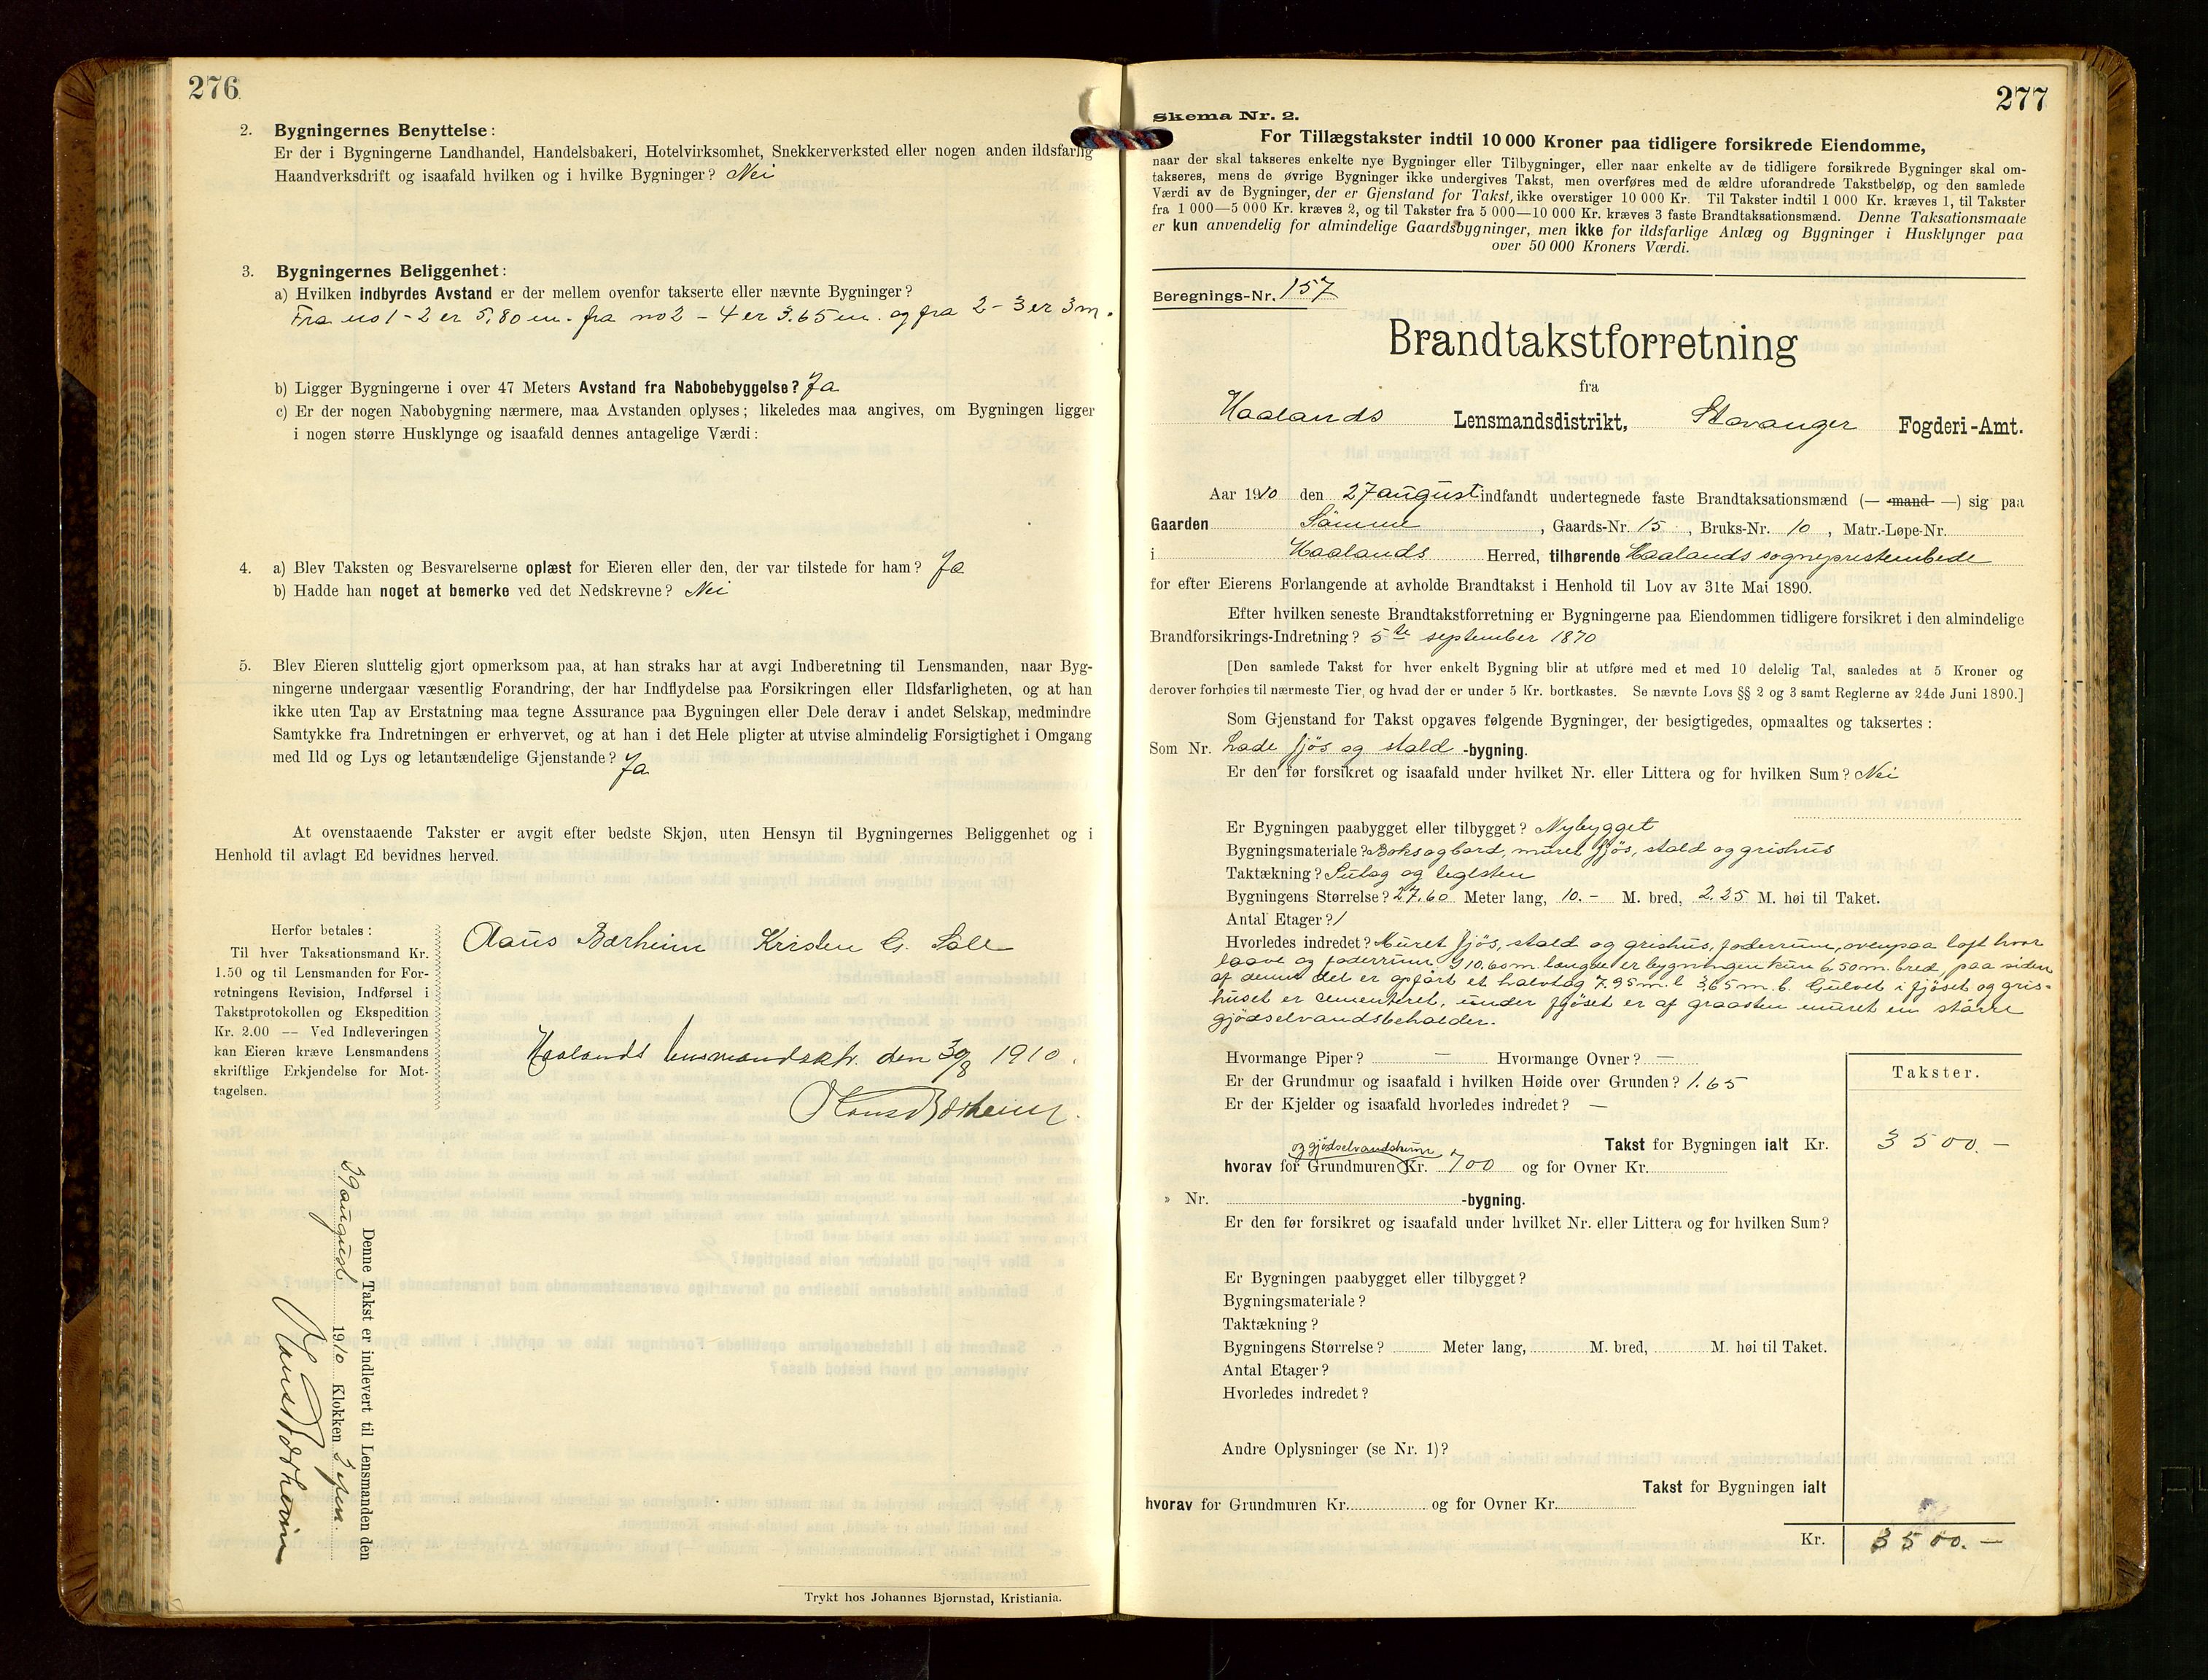 276
2. Bygningernes Benyttelse:
Er der i Bygningerne Landhandel, Handelsbakeri, Hotelvirksomhet, Snekkerverksted eller nogen anden ildsfarlig
Haandverksdrift og isaafald hvilken og i hvilke Bygninger? Nei
3. Bygningernes Beliggenhet:
a) Hvilken indbyrdes Avstand er der mellem ovenfor takserte eller nævnte Bygninger?
Fra no 1 - 2 er 5,80 m. fra no 2 - 4 er 3.65 m. og fra 2 - 3 er 3 m.
b) Ligger Bygningerne i over 47 Meters Avstand fra Nabobebyggelse? Ja
c) Er der nogen Nabobygning nærmere, maa Avstanden oplyses; likeledes maa angives, om Bygningen ligger
i nogen større Husklynge og isaafald dennes antagelige Værdi:
4. a) Blev Taksten og Besvarelserne oplæst for Eieren eller den, der var tilstede for ham? Ja
b) Hadde han noget at bemerke ved det Nedskrevne? Nei
5. Blev Eieren sluttelig gjort opmerksom paa, at han straks har at avgi Indberetning til Lensmanden, naar Byg-
ningerne undergaar væsentlig Forandring, der har Indflydelse paa Forsikringen eller Ildsfarligheten, og at han
ikke uten Tap av Erstatning maa tegne Assurance paa Bygningen eller Dele derav i andet Selskap, medmindre
Samtykke fra Indretningen er erhvervet, og at han i det Hele pligter at utvise almindelig Forsigtighet i Omgang
med Ild og Lys og letantændelige Gjenstande? Ja
At ovenstaaende Takster er avgit efter bedste Skjøn, uten Hensyn til Bygningernes Beliggenhet og i
Henhold til avlagt Ed bevidnes herved.
Herfor betales:
Til hver Taksationsmand Kr.
1.50 og til Lensmanden for For-
retningens Revision, Indførsel i
Takstprotokollen og Ekspedition
Kr. 2.00 — Ved Indleveringen
kan Eieren kræve Lensmandens
skriftlige Erkjendelse for Mot-
tagelsen.
Bærheim Kristen G.
Haalands lensmandsktr. den 30/8 1910.
Hans Bærheim
Denne Takst er indlevert til Lensmanden den
august 1910 Klokken 3 em.
Hans Bærheim
Trykt hos Johannes Bjørnstad, Kristiania.
277
Skema Nr. 2.
For Tillægstakster indtil 10 000 Kroner paa tidligere forsikrede Eiendomme,
naar der skal takseres enkelte nye Bygninger eller Tilbygninger, eller naar enkelte av de tidligere forsikrede Bygninger skal om-
takseres, mens de øvrige Bygninger ikke undergives Takst, men overføres med de ældre uforandrede Takstbeløp, og den samlede
Værdi av de Bygninger, der er Gjenstand for Takst, ikke overstiger 10 000 Kr. Til Takster indtil 1 000 Kr. kræves 1, til Takster
fra 1 000—5 000 Kr. kræves 2, og til Takster fra 5 000—10 000 Kr. kræves 3 faste Brandtaksationsmænd. Denne Taksationsmaate
er kun anvendelig for almindelige Gaardsbygninger, men ikke for ildsfarlige Anlæg og Bygninger i Husklynger paa
over 50 000 Kroners Værdi.
Beregnings-Nr. 157
Brandtakstforretning
fra
Haalands Lensmandsdistrikt, Stavanger Fogderi-Amt.
Aar 1910 den 27 august indfandt undertegnede faste Brandtaksationsmænd (— mand —) sig paa
Gaarden Sömme, Gaards-Nr. 15, Bruks-Nr. 10, Matr.-Løpe-Nr.
i Haalands Herred, tilhørende Haalands sogneprestembede
for efter Eierens Forlangende at avholde Brandtakst i Henhold til Lov av 31te Mai 1890.
Efter hvilken seneste Brandtakstforretning er Bygningerne paa Eiendommen tidligere forsikret i den almindelige
Brandforsikrings-Indretning? 5te september 1870
[Den samlede Takst for hver enkelt Bygning blir at utføre med et med 10 delelig Tal, saaledes at 5 Kroner og
derover forhøies til nærmeste Tier, og hvad der er under 5 Kr. bortkastes. Se nævnte Lovs §§ 2 og 3 samt Reglerne av 24de Juni 1890.]
Som Gjenstand for Takst opgaves følgende Bygninger, der besigtigedes, opmaaltes og taksertes:
Som Nr. Lade fjös og stald -bygning.
Er den før forsikret og isaafald under hvilket Nr. eller Littera og for hvilken Sum? Nei
Er Bygningen paabygget eller tilbygget? Nybygget
Bygningsmateriale? Boks og bord, muret fjös, stald og grishus
Taktækning? Sutag og teglsten
Bygningens Størrelse? 27,60 Meter lang, 10.- M. bred, 2.25 M. høi til Taket.
Antal Etager? 1
Hvorledes indredet? Muret fjös, stald og grishus, foderrum, ovenpaa loft hvor
laave og foderrum. I 10.60 m. længde er bygningen kun 6.50 m. bred, paa siden
af denne del er opfört et halvtag 7.95 m. l 3,65 m. b. Gulvet i fjöset og gris-
huset er cementeret, under fjöset er af graasten muret en större
gjödselvandsbeholder.
Hvormange Piper? — Hvormange Ovner? —
Er der Grundmur og isaafald i hvilken Høide over Grunden? 1.65
Er der Kjelder og isaafald hvorledes indredet? —
Takster.
Takst for Bygningen ialt Kr. 3500.-
og gjödselvandskum
hvorav for Grundmuren Kr. 700 og for Ovner Kr.
» Nr. -bygning.
Er den før forsikret og isaafald under hvilket Nr. eller Littera og for hvilken Sum?
Er Bygningen paabygget eller tilbygget?
Bygningsmateriale?
Taktækning?
Bygningens Størrelse? Meter lang, M. bred, M. høi til Taket.
Antal Etager?
Hvorledes indredet?
Andre Oplysninger (se Nr. 1)?
Takst for Bygningen ialt
hvorav for Grundmuren Kr. og for Ovner Kr.
Kr. 3500.-